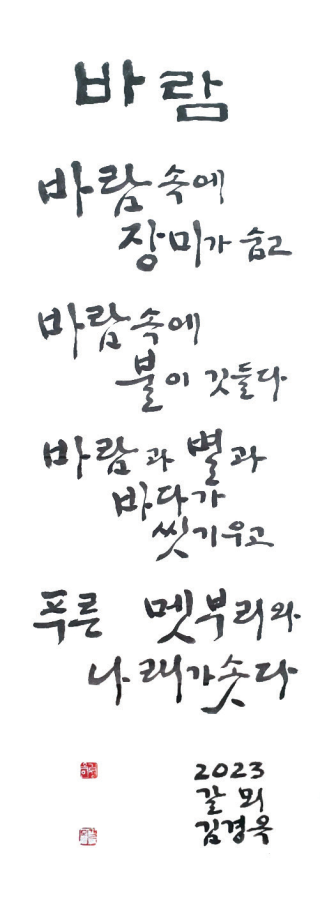 바람
바람속에
장미가 숨고
바람속에
불이 깃들다
바람과 별과
바다가
씻기우고
푸른 멧부리와
나래가솟다
2023
갈뫼
김경옥